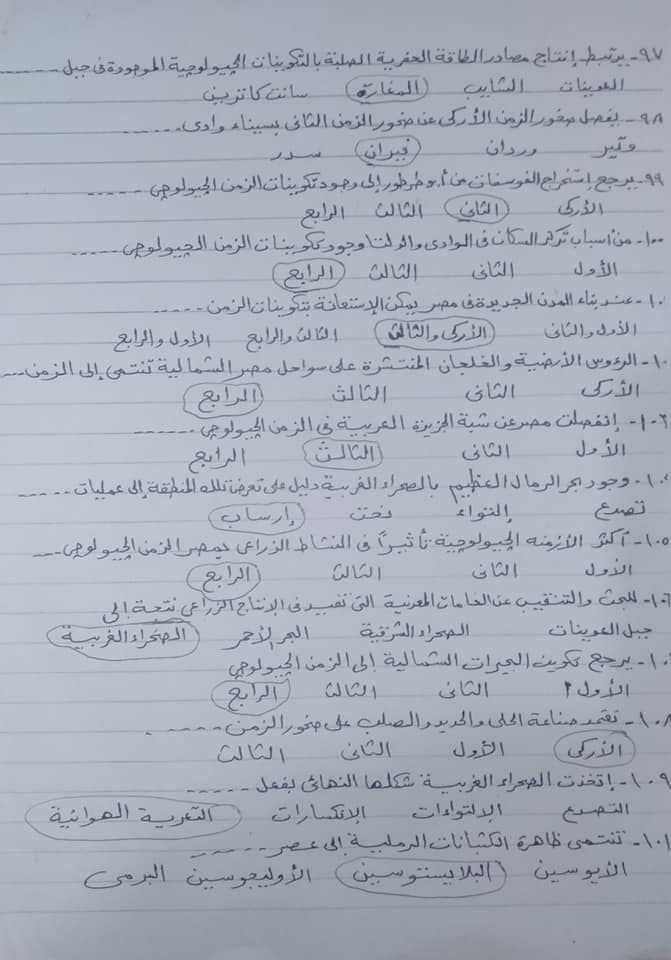 ٩٧- يرتبط إنتاج مصادر الطاقة الحفرية الصلبة بالتكوينات الجيولوجية الموجودة فى جبل -----
العوينات الشايب المغارة سانت كاترين
٩٨- يفصل صخور الزمن الأركى عن صخور الزمن الثانى بسيناء وادى -----
وتير وردان فيران سدر
٩٩- يرجع إستخراج الفوسفات من أبو طرطور إلى وجود تكوينات الزمن الجيولوجى -----
الأركى الثانى الثالث الرابع
١٠٠- من أسباب تركز السكان فى الوادى والدلتا وجود تكوينات الزمن الجيولوجى -----
الأول الثانى الثالث الرابع
١٠- عند بناء المدن الجديدة فى مصر يمكن الإستعانة بتكوينات الزمن -----
الأول والثانى الأركى والثالث الثالث والرابع الأول والرابع
١٠- الرءوس الأرضية والخلجان المنتشرة على سواحل مصر الشمالية تنتمى إلى الزمن ---
الأركى الثانى الثالث الرابع
١٠٣- إنفصلت مصر عن شبة الجزيرة العربية فى الزمن الجيولوجى -----
الأول الثانى الثالث الرابع
١٠٤- وجود بحر الرمال العظيم بالصحراء الغربية دليل على تعرض تلك المنطقة إلى عمليات -----
تصدع إلتواء نحت إرساب
١٠٥- أكثر الأزمنه الجيولوجية تأثيراً فى النشاط الزراعى بمصر الزمن الجيولوجى ---
الأول الثانى الثالث الرابع
١٠٦- للبحث والتنقيب عن الخامات المعدنية التى تفيد فى الإنتاج الزراعى نتجة إلى
جبل العوينات الصحراء الشرقية البحر الأحمر الصحراء الغربية
١٠- يرجع تكوين البحيرات الشمالية إلى الزمن الجيولوجى
الأول الثانى الثالث الرابع
١٠٨- تعتمد صناعة الحلى والحديد والصلب على صخور الزمن -----
الأركى الأول الثانى الثالث
١٠٩- إتخذت الصحراء الغربية شكلها النهائى بفعل -----
التصدع الإلتواءات الإنكسارات التعرية الهوائية
١٠١- تنتمى ظاهرة الكثبانات الرملية إلى عصر -----
الأيوسين البلايستوسين الأوليجوسين البرمى